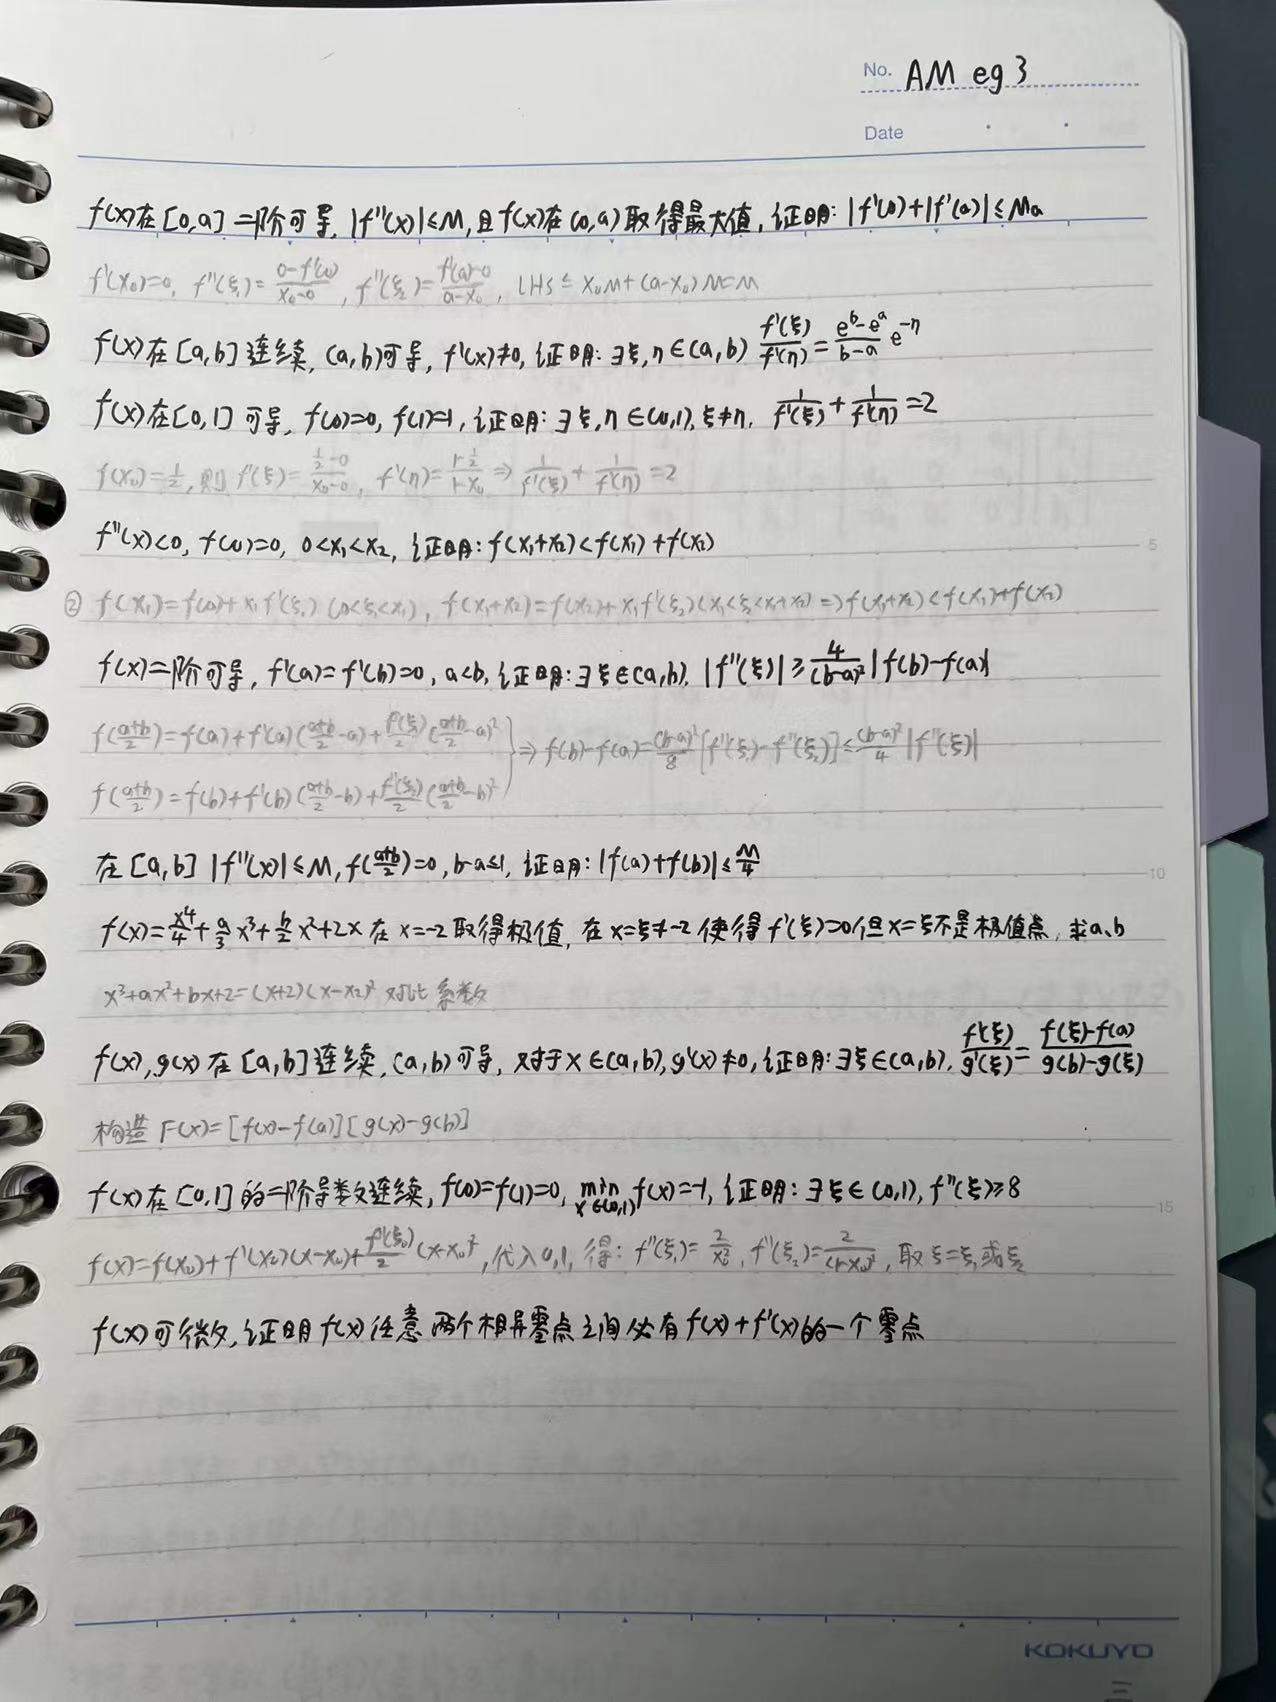 No. AM eg 3
Date
f(x)在[0,a]二阶可导, |f''(x)|≤M, 且f(x)在(0,a)取得最大值, 证明: |f'(0)+|f'(a)|≤Ma
f'(x₀)=0, f''(ξ₁)=\frac{0-f'(0)}{x₀-0}, f''(ξ₂)=\frac{f'(a)-0}{a-x₀}, LHS≤x₀M+(a-x₀)M=M
f(x)在[a,b]连续, (a,b)可导, f'(x)≠0, 证明: ∃ξ,η∈(a,b) \frac{f'(ξ)}{f'(η)}=\frac{e^b-e^a}{b-a}e^{-η}
f(x)在[0,1]可导, f(0)=0, f(1)=1, 证明: ∃ξ,η∈(0,1), ξ≠η, \frac{1}{f'(ξ)}+\frac{1}{f'(η)}=2
f(x₀)=\frac{1}{2}, 则f'(ξ)=\frac{\frac{1}{2}-0}{x₀-0}, f'(η)=\frac{1-\frac{1}{2}}{1-x₀}⇒\frac{1}{f'(ξ)}+\frac{1}{f'(η)}=2
f''(x)<0, f(0)=0, 0<x₁<x₂, 证明: f(x₁+x₂)<f(x₁)+f(x₂)
5
② f(x₁)=f(0)+x₁f'(ξ₁) (0<ξ₁<x₁), f(x₁+x₂)=f(x₂)+x₁f'(ξ₂)(x₂<ξ₂<x₁+x₂)⇒f(x₁+x₂)<f(x₁)+f(x₂)
f(x)二阶可导, f'(a)=f'(b)=0, a<b, 证明: ∃ξ∈(a,b), |f''(ξ)|≥\frac{4}{(b-a)²}|f(b)-f(a)|
f(\frac{a+b}{2})=f(a)+f'(a)(\frac{a+b}{2}-a)+\frac{f''(ξ₁)}{2}(\frac{a+b}{2}-a)² }⇒f(b)-f(a)=\frac{(b-a)²}{8}[f''(ξ₁)-f''(ξ₂)]≤\frac{(b-a)²}{4}|f''(ξ)|
f(\frac{a+b}{2})=f(b)+f'(b)(\frac{a+b}{2}-b)+\frac{f''(ξ₂)}{2}(\frac{a+b}{2}-b)²
在[a,b] |f''(x)|≤M, f(\frac{a+b}{2})=0, b-a≤1, 证明: |f(a)+f(b)|≤\frac{M}{4}
10
f(x)=\frac{x⁴}{4}+\frac{a}{3}x³+\frac{b}{2}x²+2x在x=-2取得极值, 在x=ξ≠-2使得f'(ξ)=0但x=ξ不是极值点, 求a、b
x³+ax²+bx+2=(x+2)(x-x₂)² 对比系数
f(x),g(x)在[a,b]连续, (a,b)可导, 对于x∈(a,b), g'(x)≠0, 证明: ∃ξ∈(a,b). \frac{f'(ξ)}{g'(ξ)}=\frac{f(ξ)-f(a)}{g(b)-g(ξ)}
构造F(x)=[f(x)-f(a)][g(x)-g(b)]
f(x)在[0,1]的二阶导数连续, f(0)=f(1)=0, \min_{x∈(0,1)}f(x)=-1, 证明: ∃ξ∈(0,1), f''(ξ)≥8
15
f(x)=f(x₀)+f'(x₀)(x-x₀)+\frac{f''(ξ₀)}{2}(x-x₀)², 代入0,1, 得: f''(ξ₁)=\frac{2}{x₀²}, f''(ξ₂)=\frac{2}{(1-x₀)²}, 取ξ=ξ₁或ξ₂
f(x)可微, 证明f(x)任意两个相异零点之间必有f(x)+f'(x)的一个零点
KOKUYO